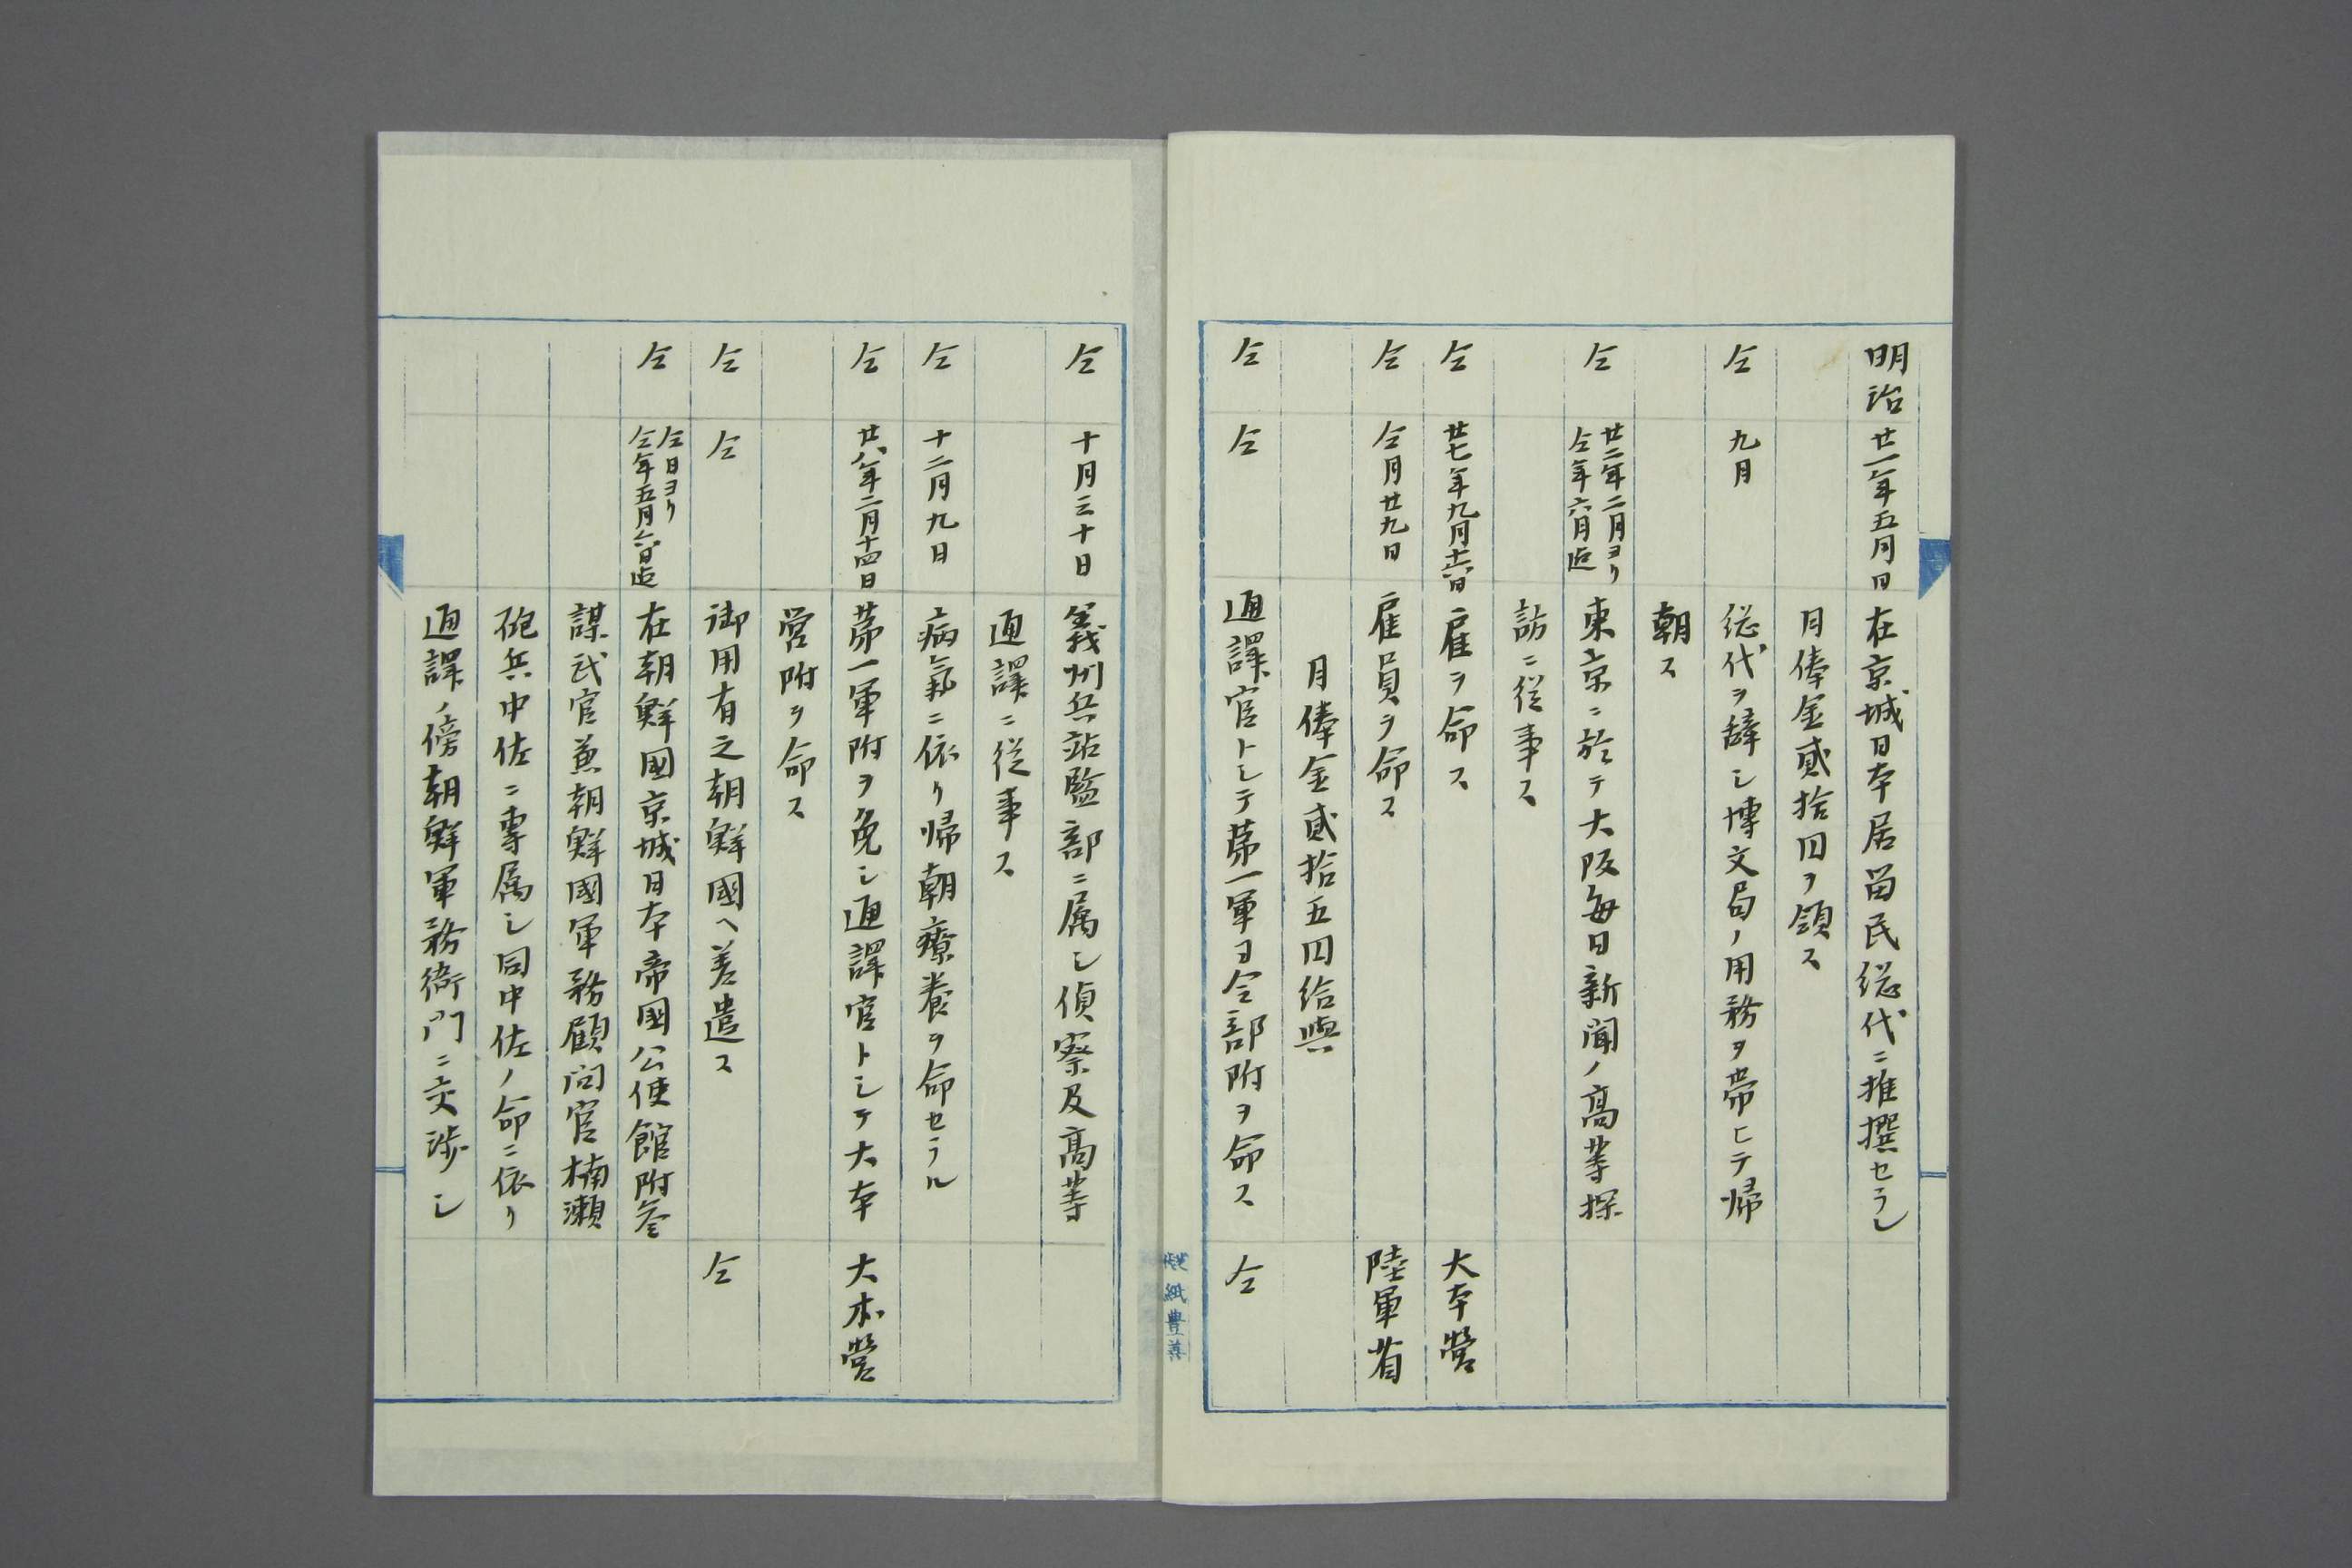 明治 廿一年五月日 在京城日本居留民総代ニ推撰セラレ
月俸金貳拾円ヲ領ス
仝 九月 総代ヲ辞シ博文局ノ用務ヲ帯ヒテ帰
朝ス
仝 廿二年二月ヨリ仝年六月迄 東京ニ於テ大阪毎日新聞ノ髙等探
訪ニ従事ス
仝 廿七年九月十六日 雇ヲ命ス 大本營
仝 仝月廿九日 雇員ヲ命ス 陸軍省
月俸金貳拾五円給與
仝 仝 通譯官トシテ第一軍司令部附ヲ命ス 仝
仝 十月三十日 義州兵站監部ニ属シ偵察及髙等
通譯ニ従事ス
仝 十二月九日 病氣ニ依リ帰朝療養ヲ命セラル
仝 廿八年二月十四日 第一軍附ヲ免シ通譯官トシテ大本 大本營
営附ヲ命ス
仝 仝 御用有之朝鮮國ヘ差遣ス 仝
仝 仝日ヨリ仝年五月六日迄 在朝鮮國京城日本帝國公使館附參
謀武官兼朝鮮國軍務顧問官楠瀬
砲兵中佐ニ專属シ同中佐ノ命ニ依リ
通譯ノ傍朝鮮軍務衙門ニ交渉シ